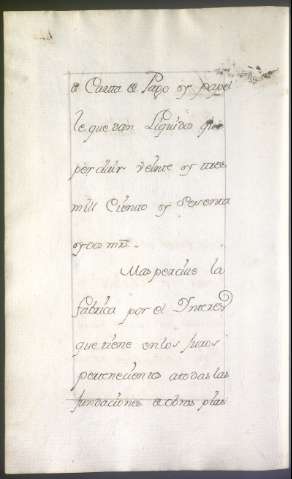 de Carta de Pago y papel
le quedan Liquidos que
percivir veinte y tres
mill Ciento y sesenta
y dos mrs.
Mas percive la
fabrica por el Interes
que tiene en los Juros
pertenecientes atodas las
fundaciones de obras pias